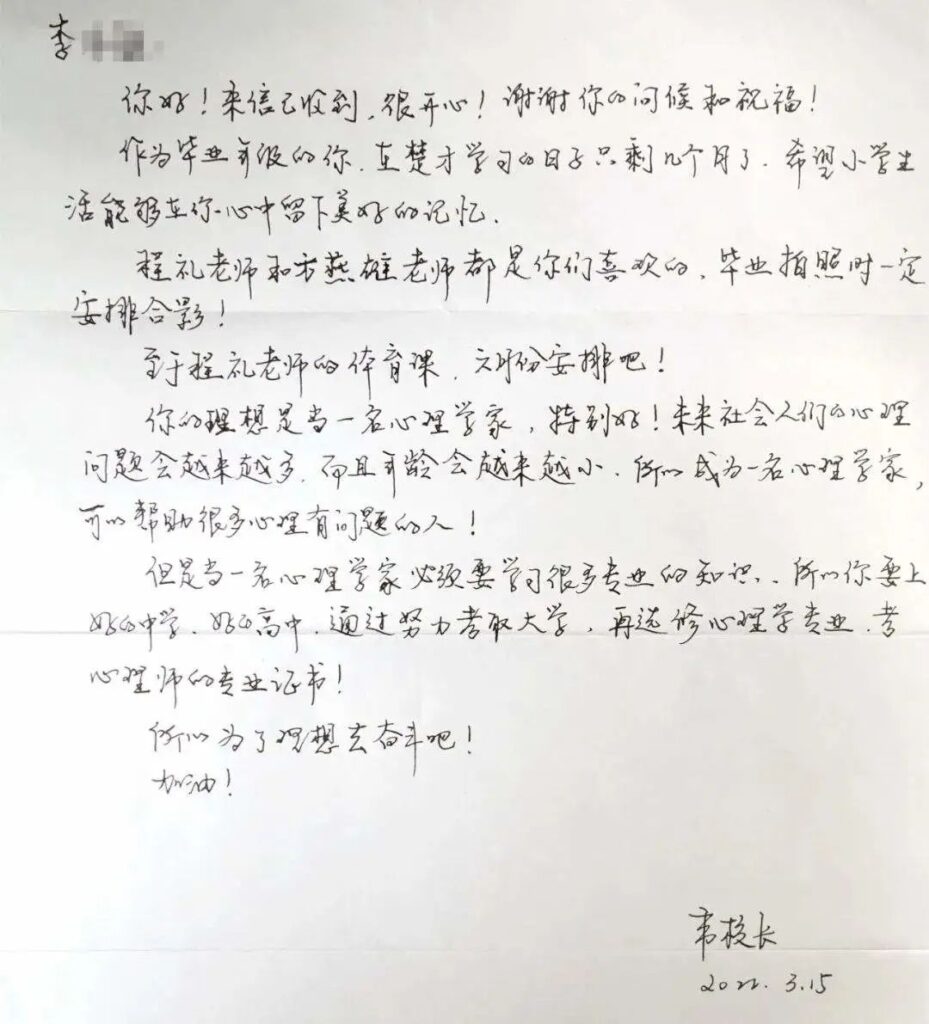 李
你好！来信已收到，很开心！谢谢你的问候和祝福！
作为毕业年级的你，在楚才学习的日子只剩几个月了，希望小学生
活能够在你心中留下美好的记忆.
程礼老师和方燕雄老师都是你们喜欢的，毕业拍照时一定
安排合影！
至于程礼老师的体育课，六月份安排吧！
你的理想是当一名心理学家，特别好！未来社会人们的心理
问题会越来越多，而且年龄会越来越小，所以成为一名心理学家，
可以帮助很多心理有问题的人！
但是当一名心理学家必须要学习很多专业的知识，所以你要上
好的中学、好的高中，通过努力考取大学，再选修心理学专业，考
心理师的专业证书！
所以为了理想去奋斗吧！
加油！
韦校长
2022. 3.15